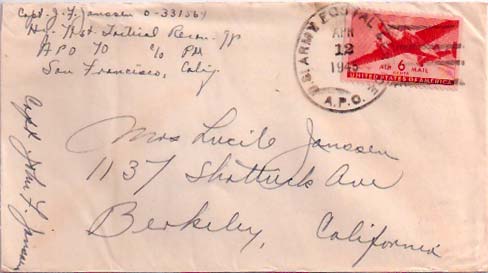 Capt. J. F. Janssen O-331567
Hq. 71st Tactical Recon. Gp
APO 70 c/o PM
San Francisco, Calif
U.S. ARMY POSTAL
APR
12
1945
A.P.O.
AIR 6 MAIL
CENTS
UNITED STATES OF AMERICA
Capt John F. Janssen
Mrs Lucile Janssen
1137 Shattuck Ave
Berkeley,
California